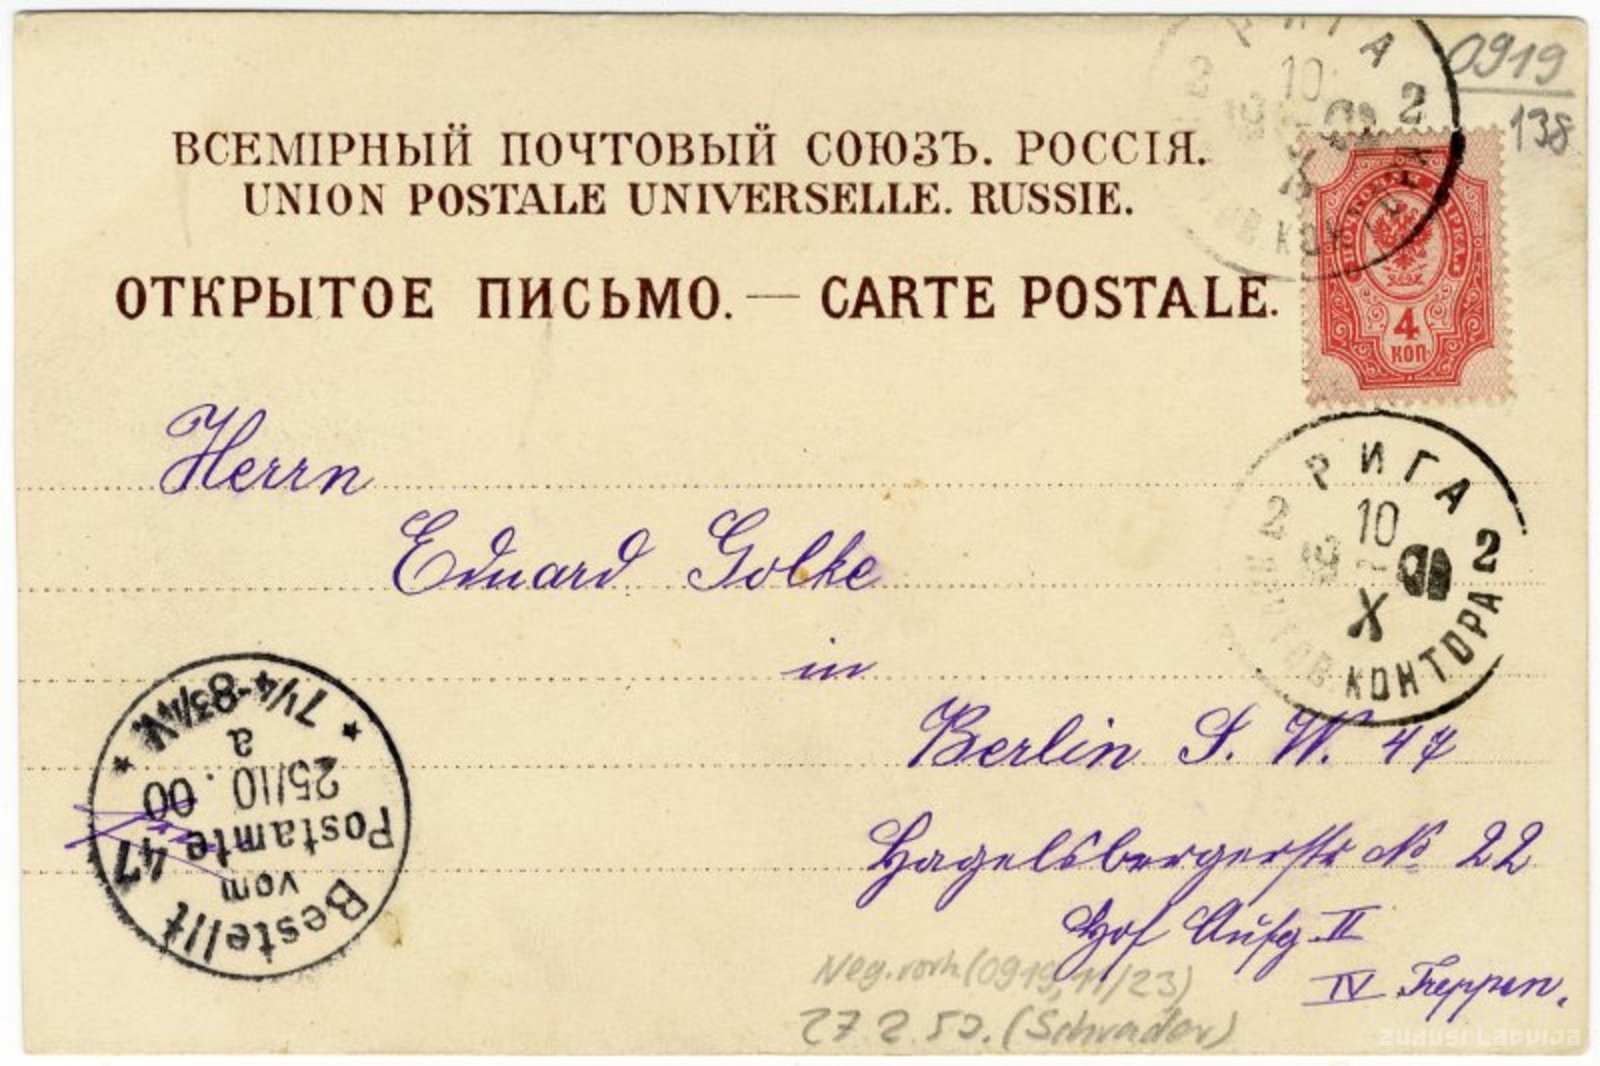 ВСЕМІРНЫЙ ПОЧТОВЫЙ СОЮЗЪ. РОССІЯ.
UNION POSTALE UNIVERSELLE. RUSSIE.
ОТКРЫТОЕ ПИСЬМО. — CARTE POSTALE.
0919
138
РИГА
10
2 2
X
ПОЧТОВАЯ МАРКА
4
КОП
Herrn
Eduard Golke
in
Berlin S. W. 47
Hagelsbergerstr № 22
Hof Aufg. II
IV Treppen.
РИГА
2 10 2
X
КОНТОРА
Bestellt
vom
Postamte 47
25/10. 00
a
7 1/4-8 3/4 V.
Neg. vorh. (0919, 11/23)
27 2 52. (Schrader)
Zudusi Latvija